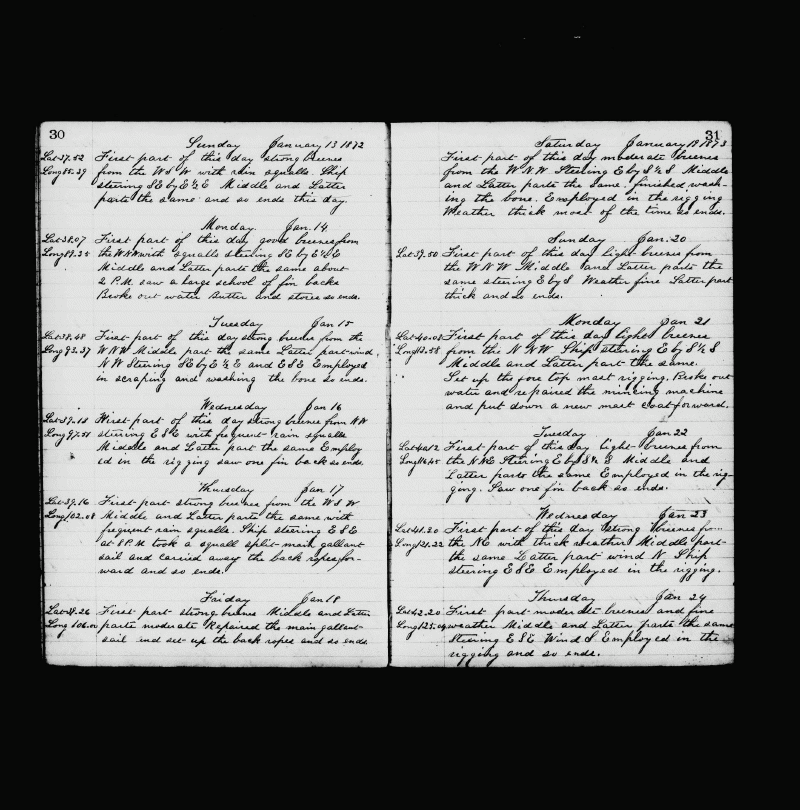 30
Sunday January 13 1872
Lat 37.52 First part of this day strong breezes
Long 85.29 from the W S W with rain squalls. Ship
steering SE by E ½ E Middle and Latter
parts the same and so ends this day.
Monday Jan. 14
Lat 38.07 First part of this day good breezes from
Long 89.25 the WNW with squalls steering SE by E ½ E
Middle and Latter parts the same about
2 P.M. saw a large school of fin backs
Broke out water Butter and stores so ends.
Tuesday Jan 15
Lat 38.48 First part of this day strong breezes from the
Long 93.37 WNW Middle part the same Latter part wind
NW Steering SE by E ½ E and ESE Employed
in scraping and washing the bone so ends.
Wednesday Jan 16
Lat 39.15 First part of this day strong breezes from NW
Long 97.51 steering ESE with frequent rain squalls
Middle and Latter part the same Employ
ed in the rigging saw one fin back so ends
Thursday Jan 17
Lat 39.16 First part strong breezes from the W S W
Long 102.08 Middle and Latter parts the same with
frequent rain squalls. Ship steering ESE
at 8 P.M. took a squall split main gallant
sail and carried away the back ropes for-
ward and so ends.
Friday Jan 18
Lat 39.26 First part strong breezes Middle and Latter
Long 106.01 parts moderate Repaired the main gallant
sail and set up the back ropes and so ends
31
Saturday January 19 1873
First part of this day moderate breezes
from the W N W Steering E by S ½ S Middle
and Latter parts the same. finished wash-
ing the bone. Employed in the rigging
Weather thick most of the time so ends.
Sunday Jan. 20
Lat 39.50 First part of this day light breezes from
the W N W Middle and Latter parts the
same steering E by S Weather fine Latter part
thick and so ends.
Monday Jan 21
Lat 40.08 First part of this day light breezes
Long 112.58 from the N N W Ship steering E by S ½ S
Middle and Latter part the same.
Set up the fore top mast rigging. Broke out
water and repaired the mincing machine
and put down a new mast coat forward.
Tuesday Jan 22
Lat 40.12 First part of this day light breezes from
Long 116.45 the N.NE Steering E by S ½ S Middle and
Latter parts the same Employed in the rig-
ging. Saw one fin back so ends.
Wednesday Jan 23
Lat 41.20 First part of this day strong breezes from
Long 121.22 the NE with thick weather Middle part
the same Latter part wind N Ship
steering ESE Employed in the rigging.
Thursday Jan 24
Lat 42.20 First part moderate breezes and fine
Long 125.04 weather Middle and Latter parts the same
Steering ESE Wind S Employed in the
rigging and so ends.